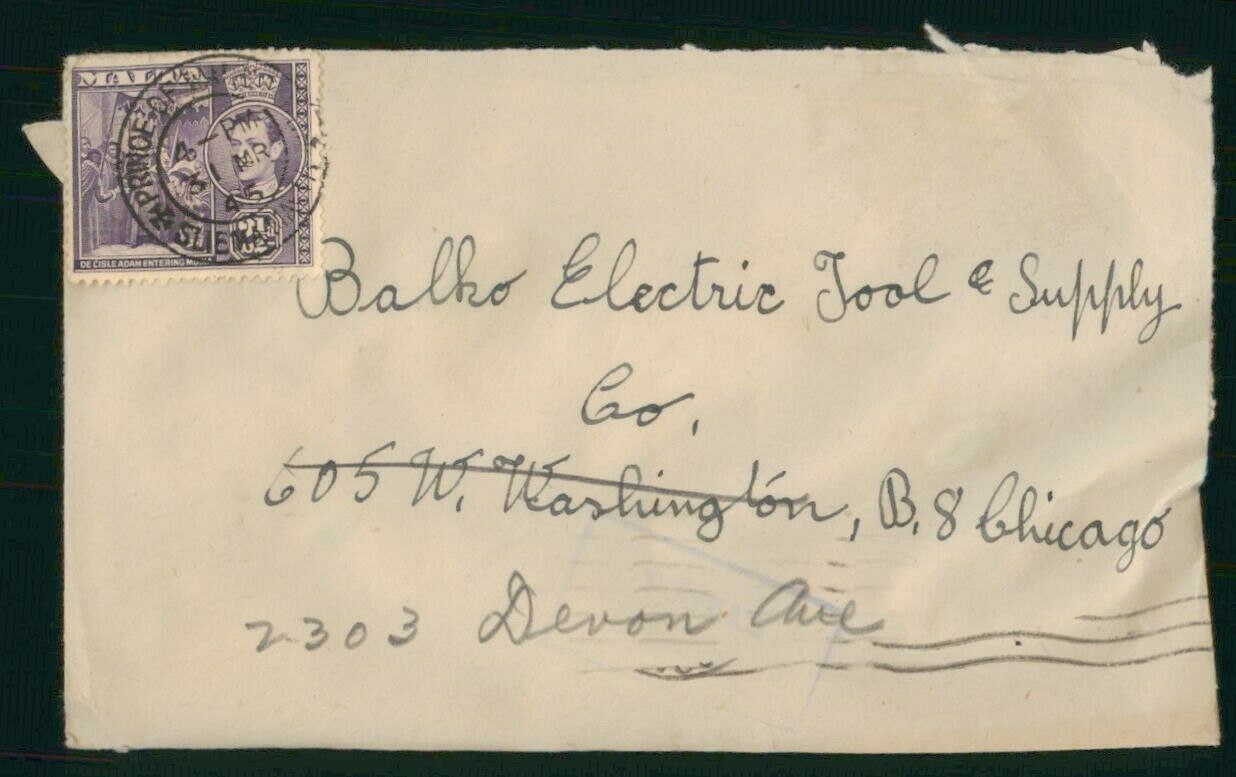 MALTA
PRINCE OF
4 - PM
1 MR
45
SLIEMA
DE L'ISLE ADAM ENTERING
Balko Electric Tool & Supply
Co,
605 W. Washington, B, 8 Chicago
2303 Devon Ave